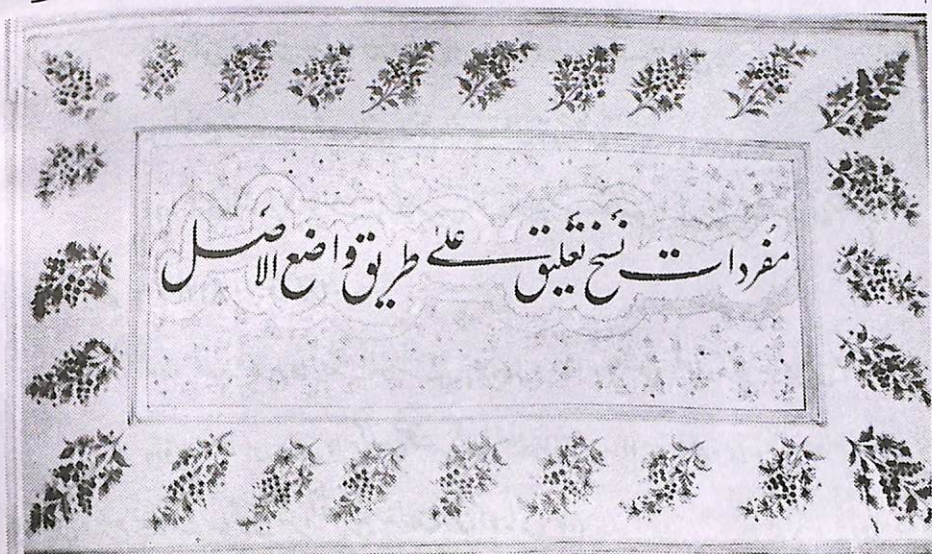 مفردات نسخ تعليق على طريق واضع الاصل